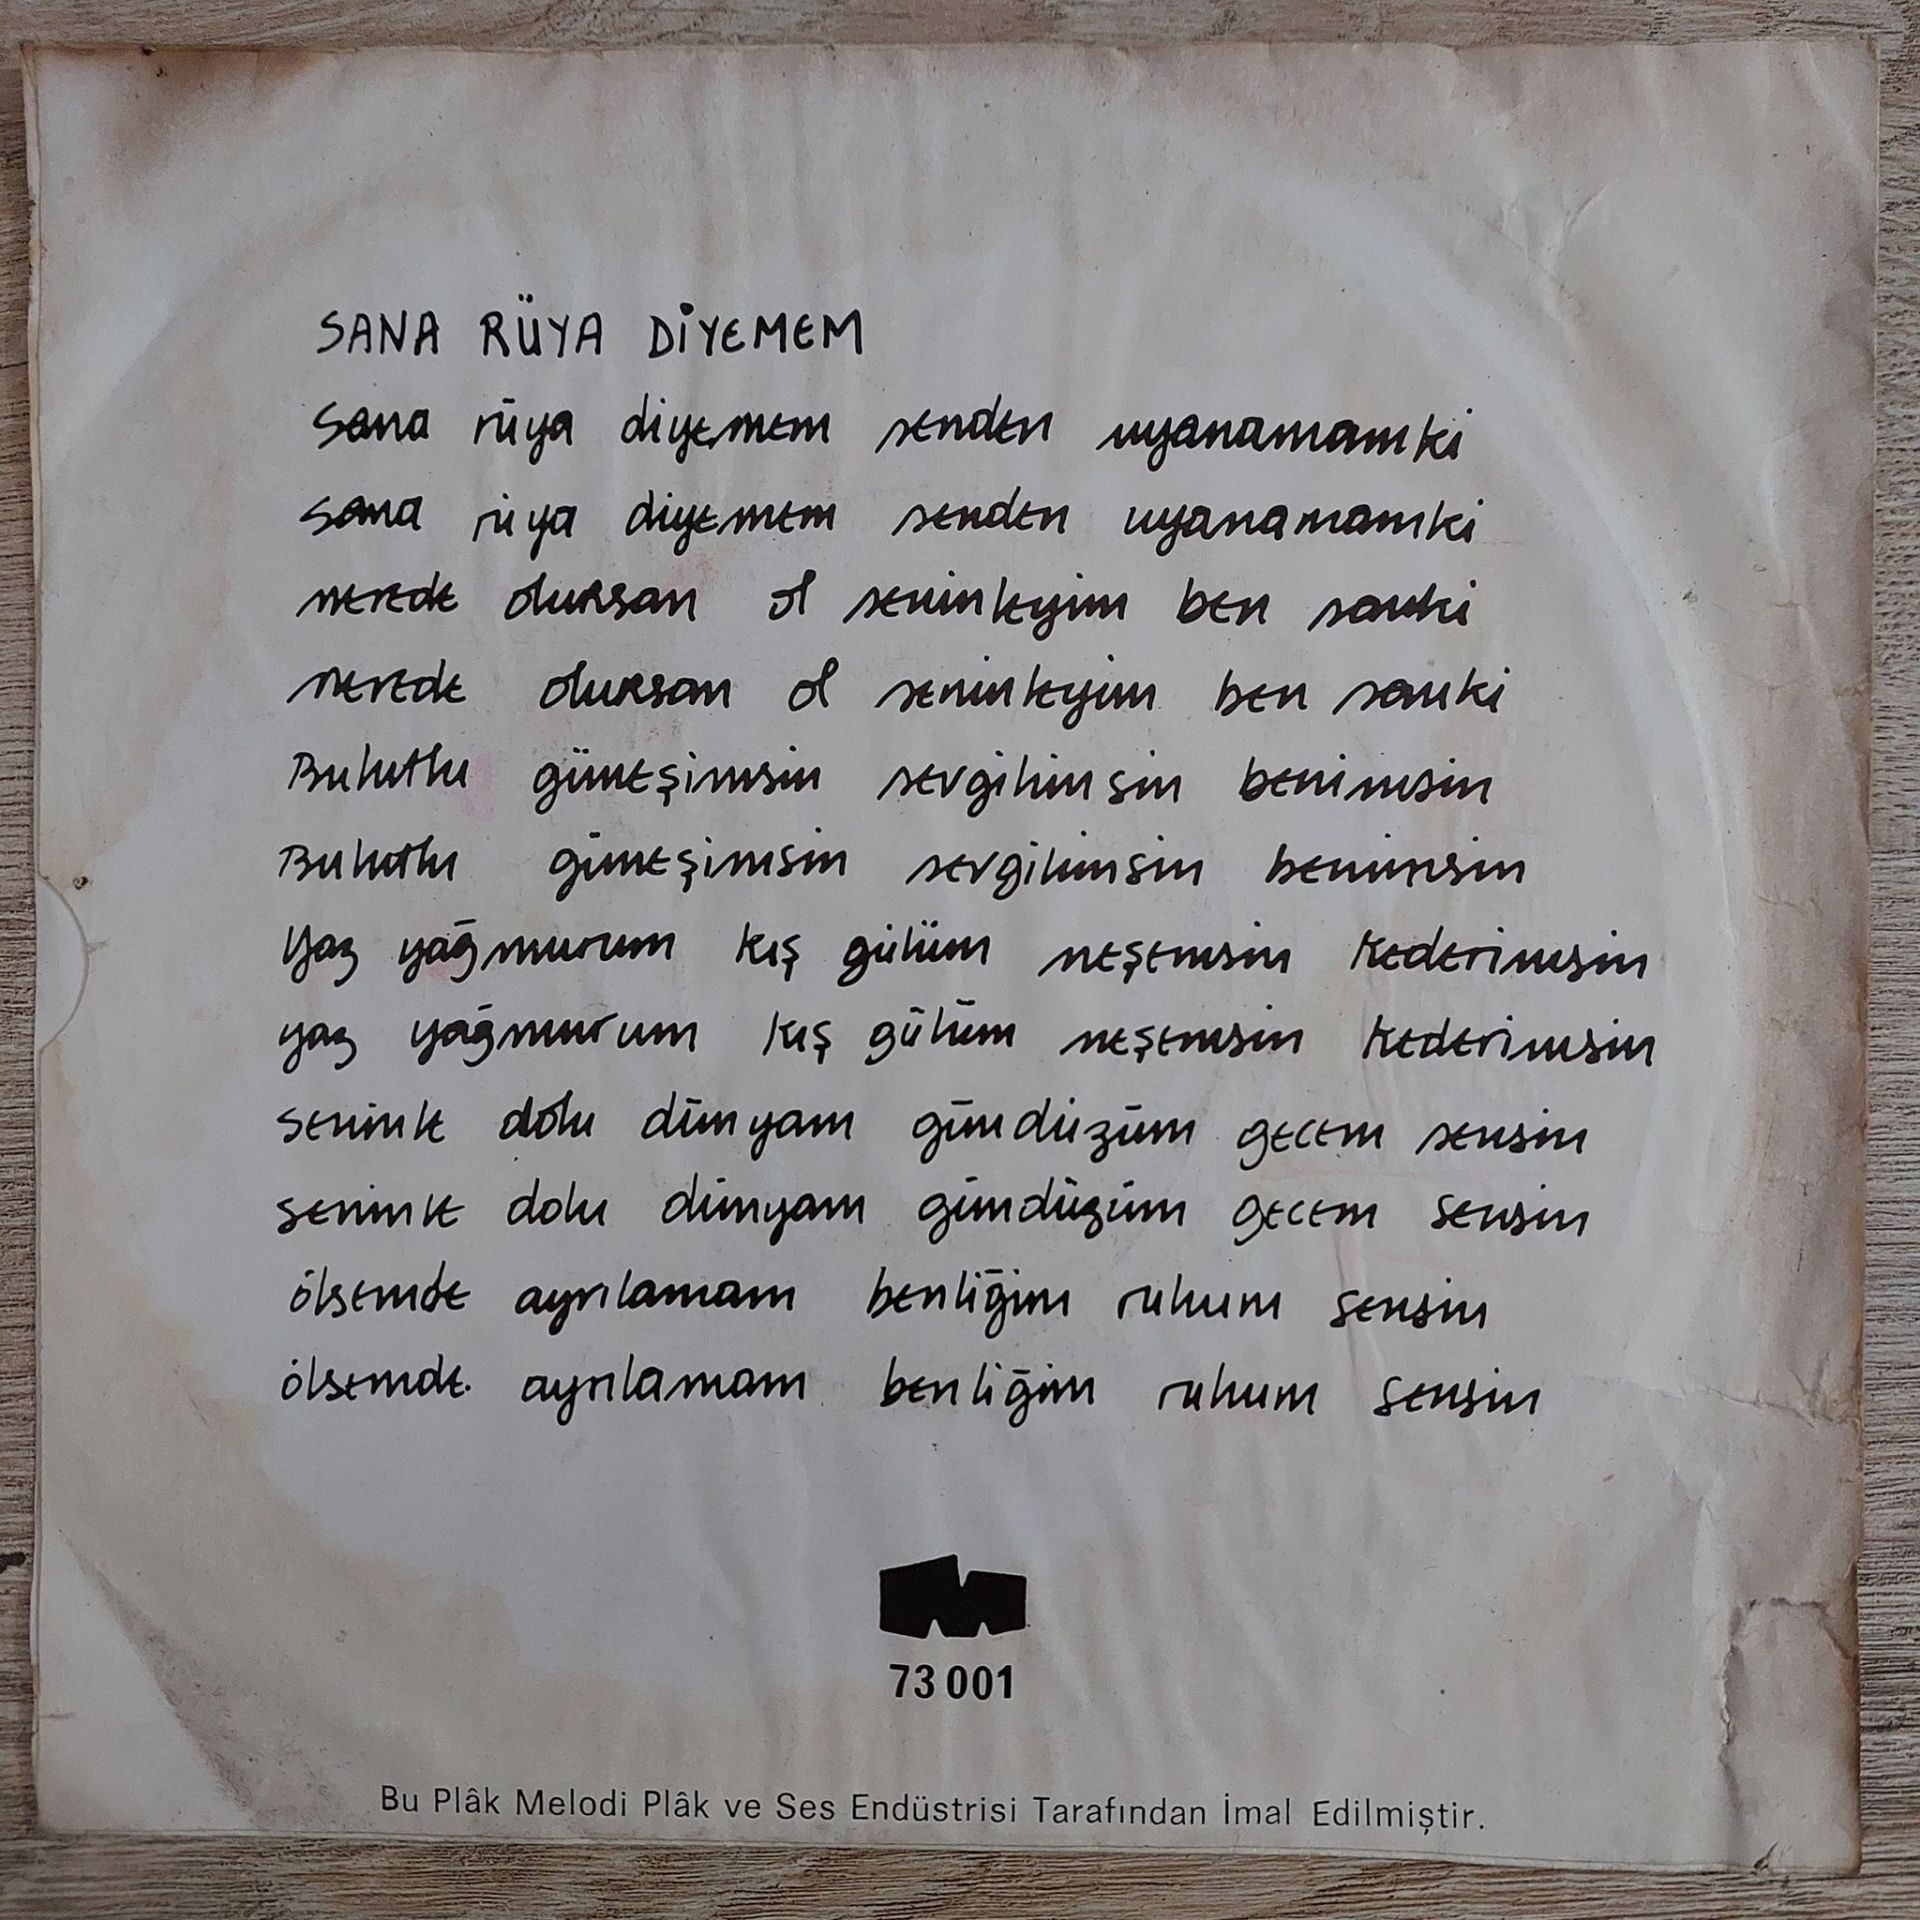 SANA RÜYA DİYEMEM
Sana rüya diyemem senden uyanamamki
sana rüya diyemem senden uyanamamki
nerede olursan ol seninleyim ben sanki
nerede olursan ol seninleyim ben sanki
Bulutlu güneşimsin sevgilimsin benimsin
Bulutlu güneşimsin sevgilimsin benimsin
Yaz yağmurum kış gülüm neşemsin kederimsin
yaz yağmurum kış gülüm neşemsin kederimsin
seninle dolu dünyam gündüzüm gecem sensin
seninle dolu dünyam gündüzüm gecem sensin
ölsemde ayrılamam benliğim ruhum sensin
ölsemde ayrılamam benliğim ruhum sensin
73 001
Bu Plâk Melodi Plâk ve Ses Endüstrisi Tarafından İmal Edilmiştir.